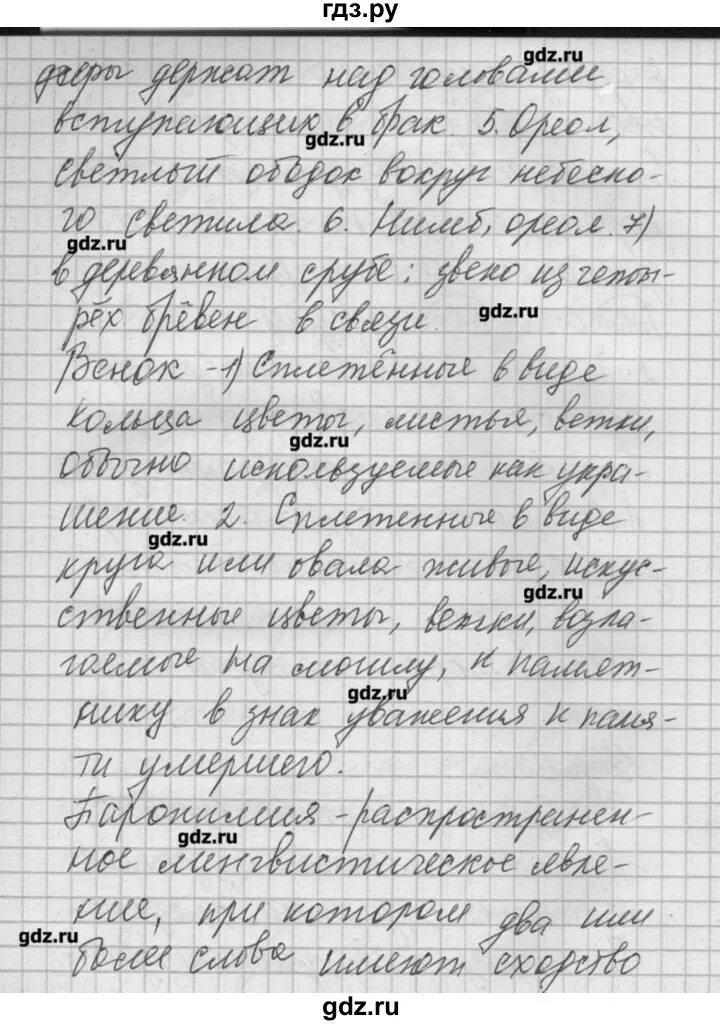 гдз.ру
gdz.ru
жеры держат над головами
вступающих в брак. 5. Ореол,
gdz.ru
светлый ободок вокруг небесно-
го светила. 6. Нимб, ореол. 7)
gdz.ru
в деревянном срубе: звено из четы-
рёх брёвен в связи.
gdz.ru
Венок - 1) Сплетённые в виде
кольца цветы, листья, ветки,
gdz.ru
обычно используемые как укра-
шение. 2. Сплетенные в виде
gdz.ru
круга или овала живые, искус-
gdz.ru
ственные цветы, ветки, возла-
гаемые на могилу, к памят-
gdz.ru
нику в знак уважения к памя-
ти умершего.
Паронимия - распространен-
gdz.ru
ное лингвистическое явле-
ние, при котором два или
gdz.ru
более слова имеют сходство
gdz.ru